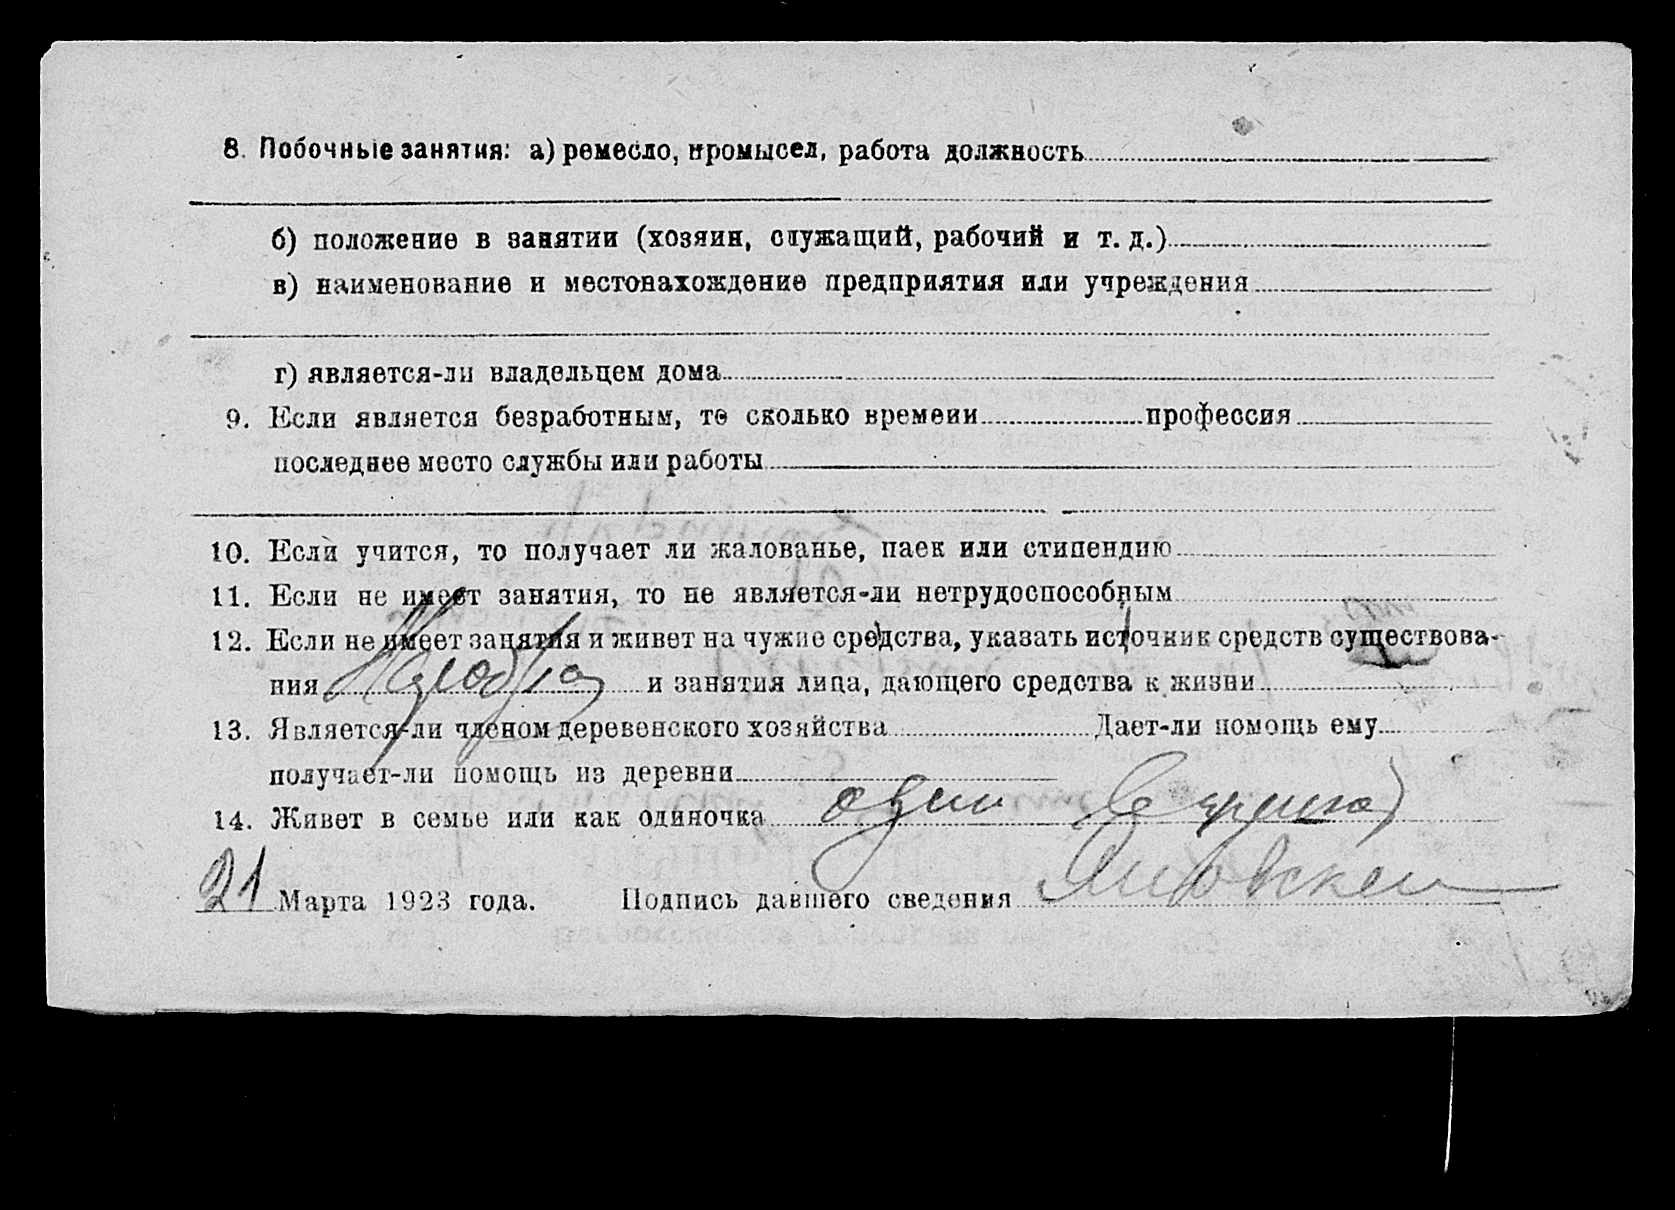 8. Побочные занятия: а) ремесло, промысел, работа должность
б) положение в занятии (хозяин, служащий, рабочий и т. д.)
в) наименование и местонахождение предприятия или учреждения
г) является-ли владельцем дома
9. Если является безработным, то сколько времени профессия
последнее место службы или работы
10. Если учится, то получает ли жалованье, паек или стипендию
11. Если не имеет занятия, то не является-ли нетрудоспособным
12. Если не имеет занятия и живет на чужие средства, указать источник средств существова-
ния и занятия лица, дающего средства к жизни
13. Является-ли членом деревенского хозяйства Дает-ли помощь ему
получает-ли помощь из деревни
14. Живет в семье или как одиночка один
21 Марта 1923 года. Подпись давшего сведения